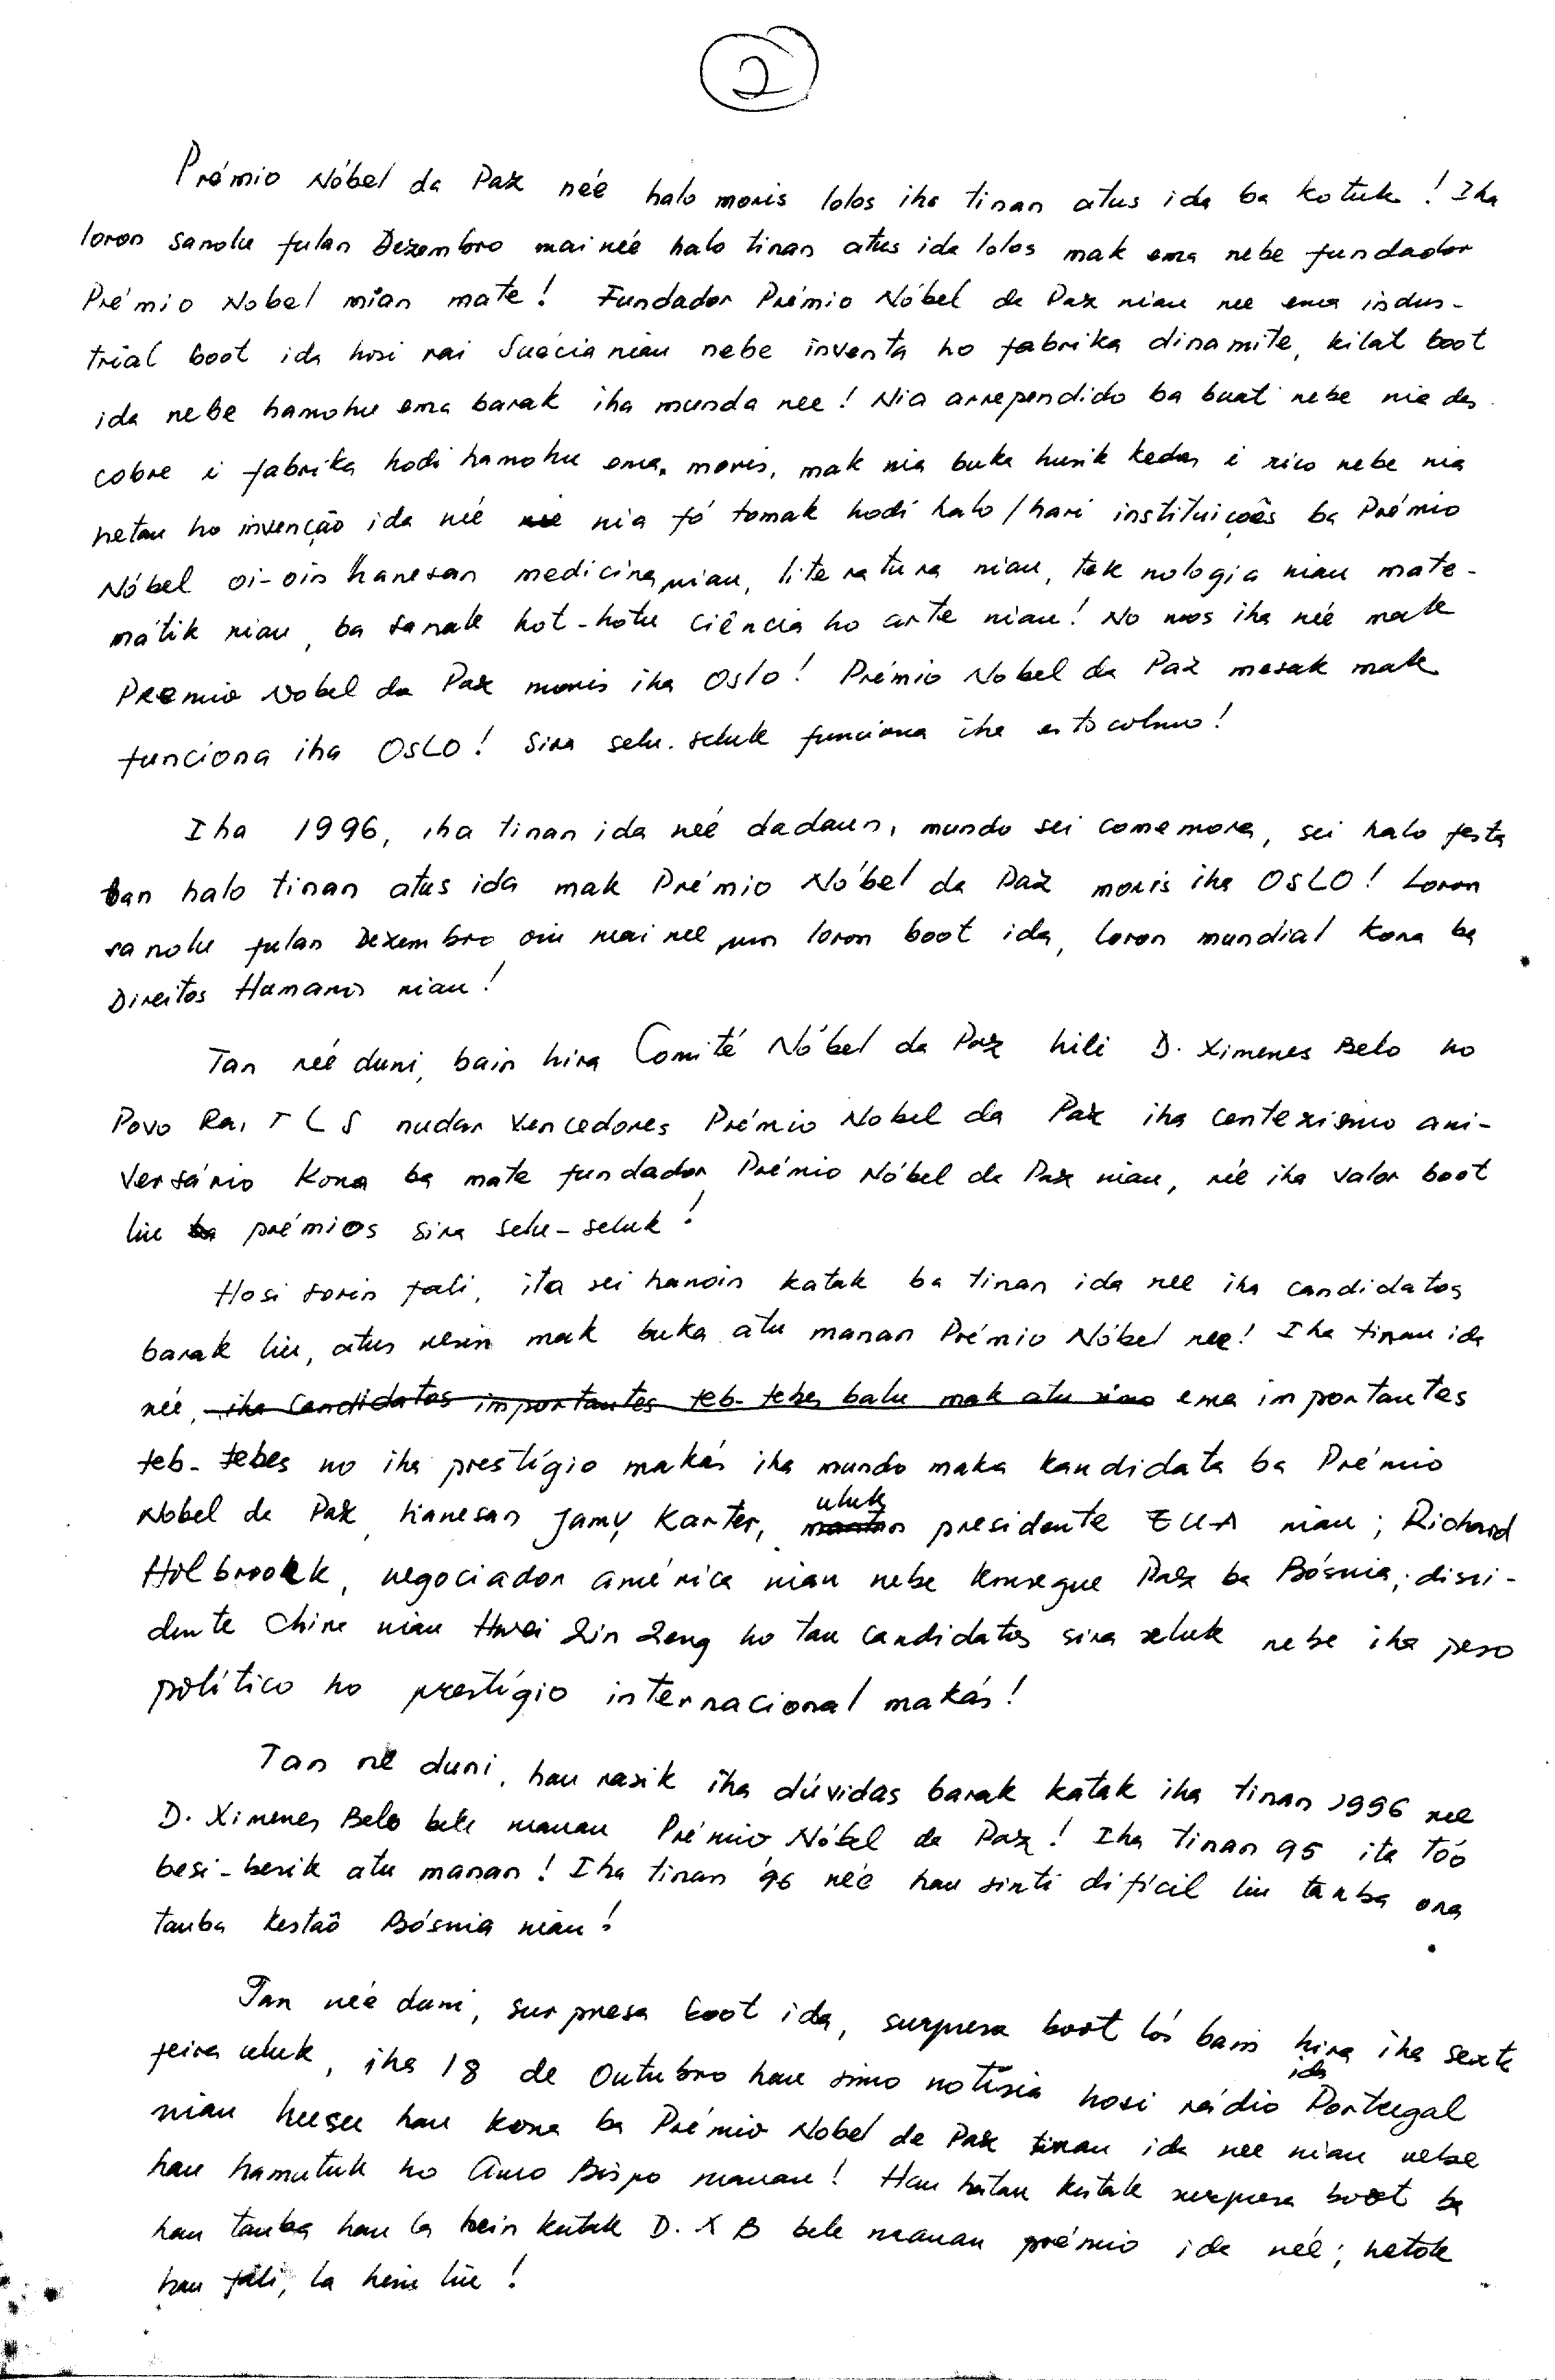 2
Prémio Nóbel da Paz neé halo moris lolos iha tinan atus ida ba kotuk! Iha
loron sanolu fulan Dezembro mai neé halo tinan atus ida lolos mak ema nebe fundador
Prémio Nobel nian mate! Fundador Prémio Nóbel da Paz niau nee ema indus-
trial boot ida hosi rai Suécia niau nebe inventa ho fabrika dinamite, kilat boot
ida nebe hamohu ema barak iha munda nee! Nia arrependido ba buat nebe nia des
cobre i fabrika hodi hamohu ema moris, mak nia buka husik kedas i rico nebe nia
hetau ho invenção ida neé nia fó tomak hodi halo/hari instituiçoês ba Prémio
Nóbel oi-oin hanesan medicina niau, literatura niau, teknologia niau mate-
mátik niau, ba sanak hot-hotu ciência ho arte niau! No mos iha neé mak
Premio Nobel da Paz moris iha Oslo! Prémio Nobel da Paz mesak mak
funciona iha OSLO! Sira selu-seluk funciona iha estocolmo!
Iha 1996, iha tinan ida neé dadaun, mundo sei comemora, sei halo festa
tan halo tinan atus ida mak Prémio Nóbel da Paz moris iha OSLO! Loron
sanolu fulan Dezembro oin mai nee mos loron boot ida, loron mundial kona ba
Direitos Humanos niau!
Tan neé duni, bain hira Comité Nóbel da Paz hili D. Ximenes Belo no
Povo Rai T L S nudar vencedores Prémio Nobel da Paz iha centexismo ani-
versário kona ba mate fundador Prémio Nóbel da Paz niau, neé iha valor boot
liu ba prémios sira selu-seluk!
Hosi sorin fali, ita sei hanoin katak ba tinan ida nee iha candidatos
barak liu, atus resin mak buka atu manan Prémio Nóbel nee! Iha tinan ida
neé, iha candidatos importantes teb-tebes balu mak atu simo ema importantes
teb-tebes no iha prestígio makás iha mundo maka kandidata ba Prémio
Nobel da Paz hanesan Jamy Karter, uluk presidente EUA niau; Richard
Holbroock, negociador américa niau nebe konsegue Paz ba Bósnia; dissi-
dente China niau Hwei Jin Jeng ho tau candidatos sira seluk nebe iha peso
político ho prestígio internacional makás!
Tan né duni, hau rasik iha dúvidas barak katak iha tinan 1996 nee
D. Ximenes Belo bele manau Prémio Nóbel da Paz! Iha tinan 95 ita tóo
besi-besik atu manan! Iha tinan '96 neé hau sinti difícil liu tanba ona
tauba kestaõ Bósnia niau!
Tan neé duni, surpresa boot ida, surpresa boot lós bain hira iha sexta
feira uluk, iha 18 de Outubro hau simo notísia hosi rádio ida Portugal
niau husu hau kona ba Prémio Nobel da Paz tinau ida nee niau nebe
hau hamutuk ho Amo Bispo manau! Hau hatau katak surpresa boot ba
hau tauba hau la hein katak D. X B bele manau prémio ida neé; netok
hau fali, la hein liu!